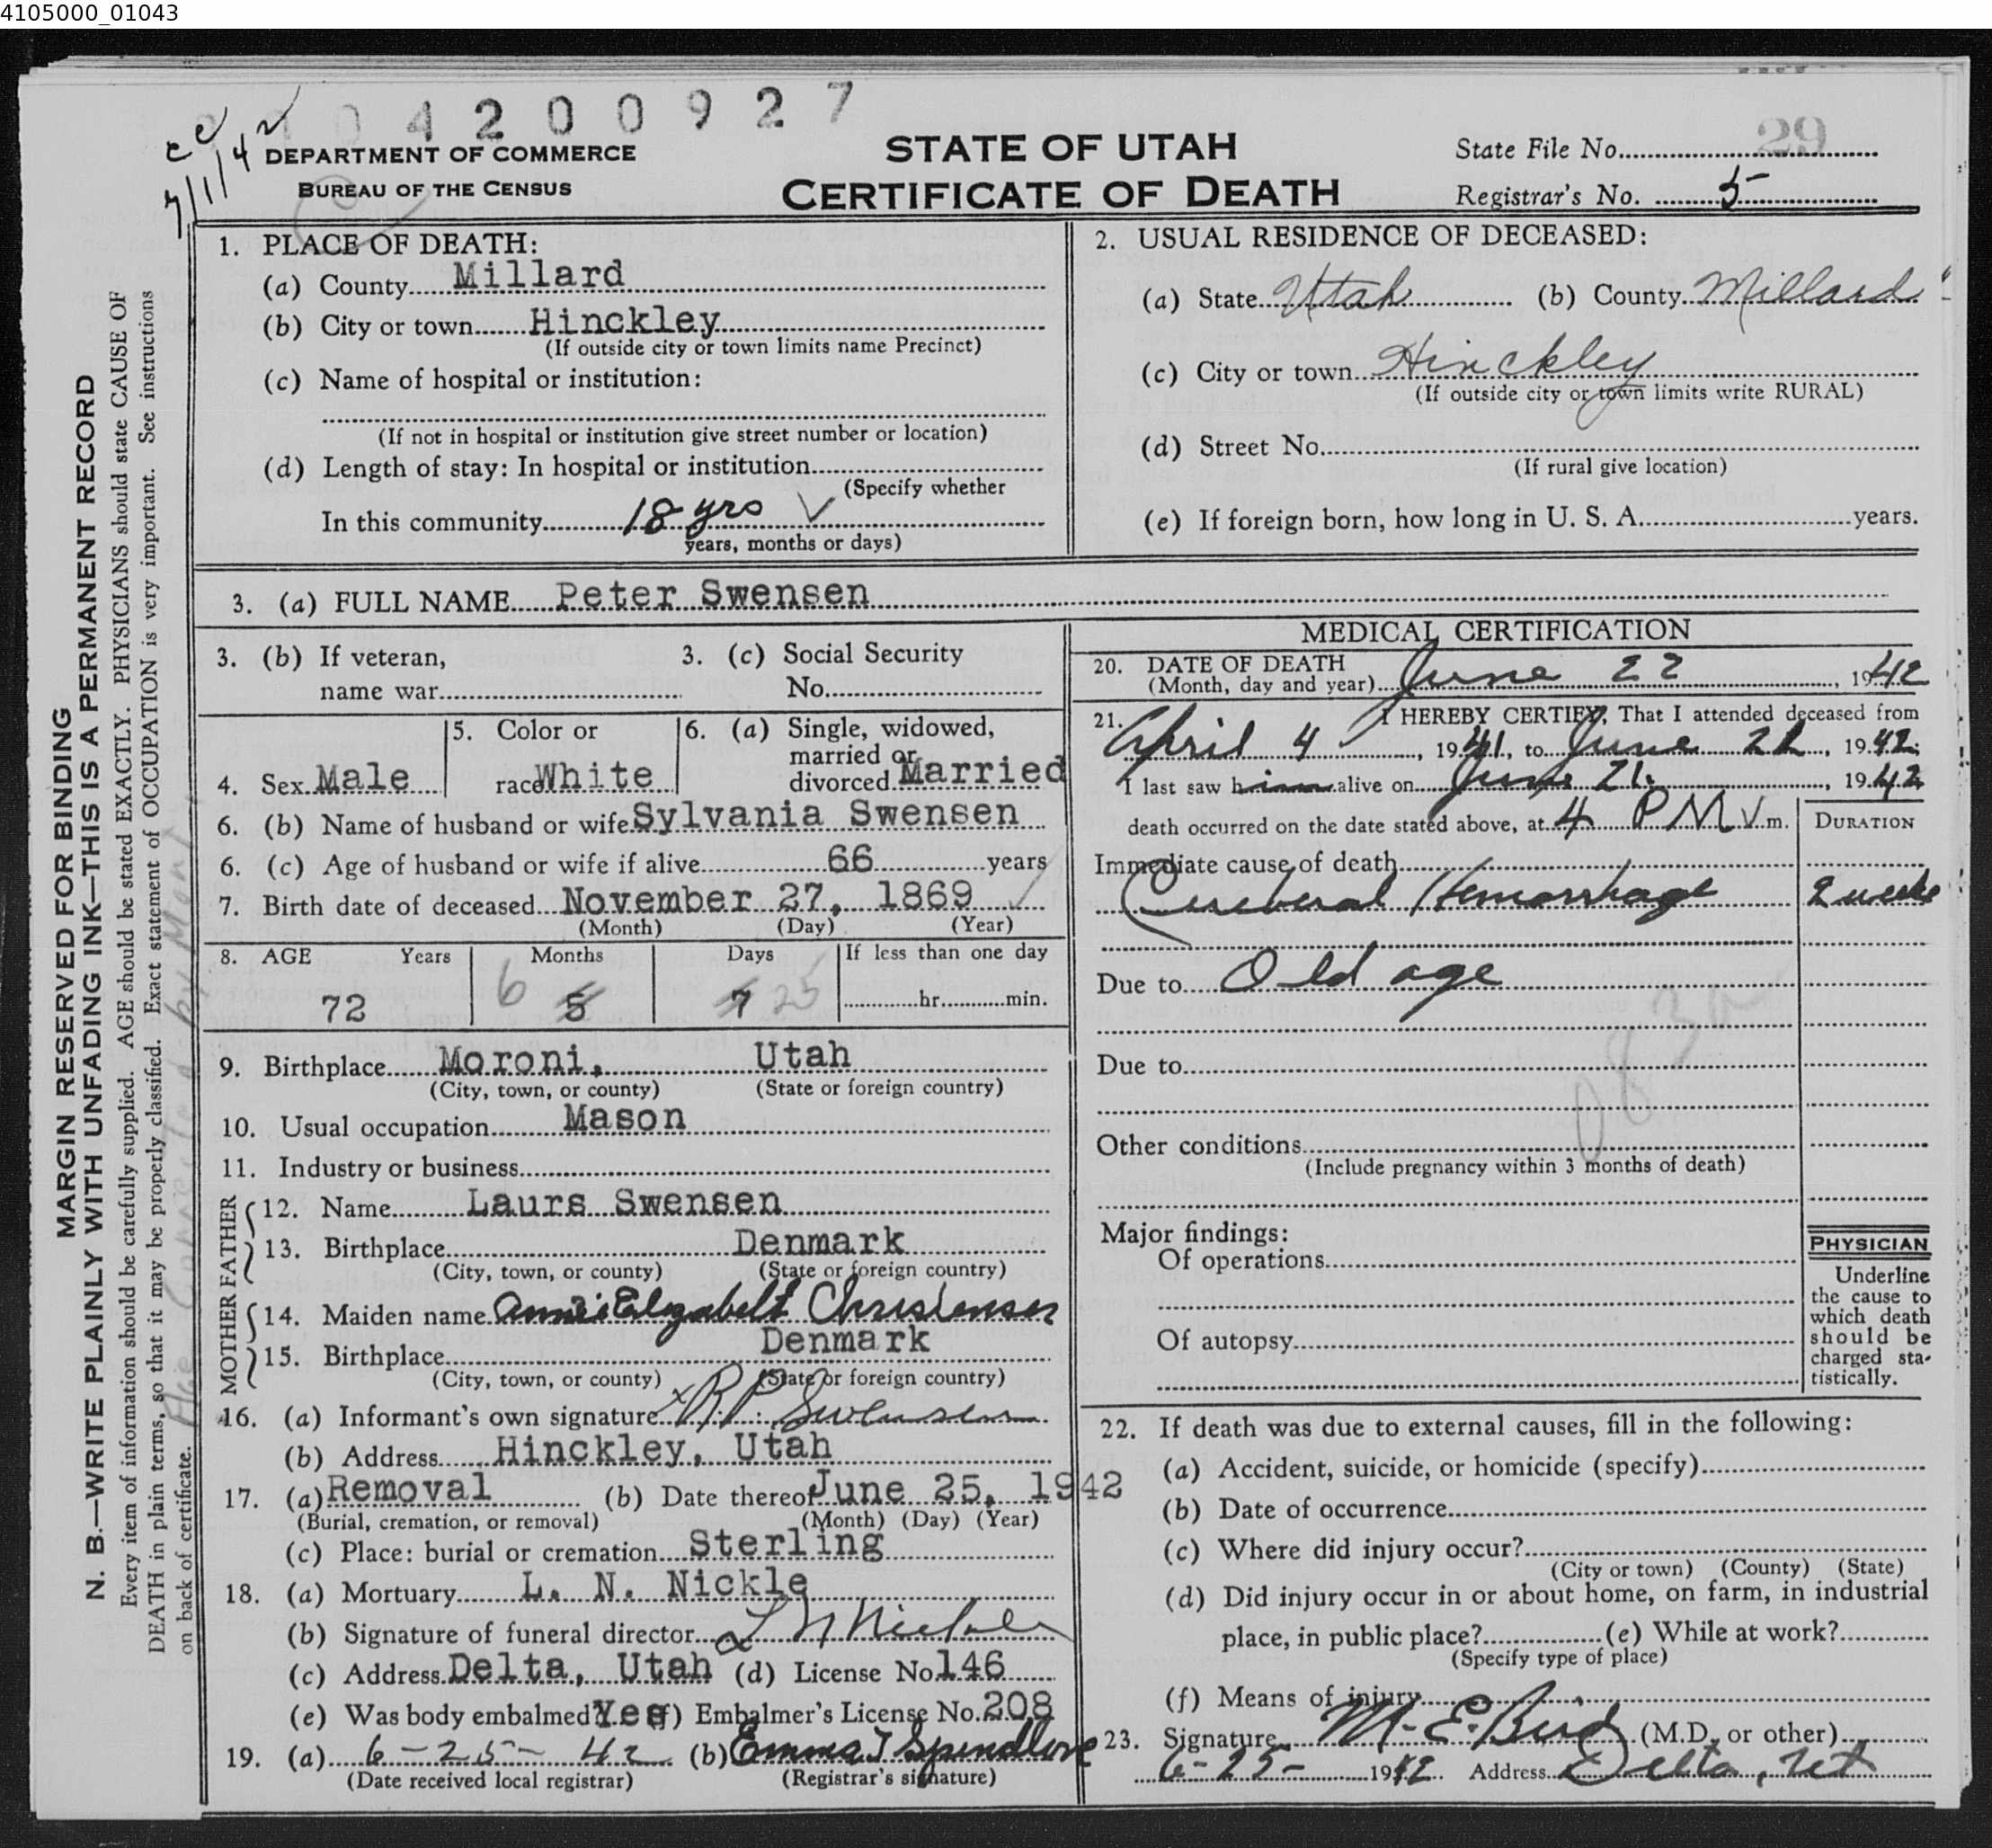 4105000_01043
04200927
cc 7/1/42
DEPARTMENT OF COMMERCE
BUREAU OF THE CENSUS
STATE OF UTAH
CERTIFICATE OF DEATH
State File No. 29
Registrar's No. 5
MARGIN RESERVED FOR BINDING
N. B.—WRITE PLAINLY WITH UNFADING INK—THIS IS A PERMANENT RECORD
Every item of information should be carefully supplied. AGE should be stated EXACTLY. PHYSICIANS should state CAUSE OF
DEATH in plain terms, so that it may be properly classified. Exact statement of OCCUPATION is very important. See instructions
on back of certificate.
Age Corrected by
1. PLACE OF DEATH:
(a) County Millard
(b) City or town Hinckley
(If outside city or town limits name Precinct)
(c) Name of hospital or institution:
(If not in hospital or institution give street number or location)
(d) Length of stay: In hospital or institution
(Specify whether
In this community 18 yrs ✓
years, months or days)
2. USUAL RESIDENCE OF DECEASED:
(a) State Utah (b) County Millard
(c) City or town Hinckley
(If outside city or town limits write RURAL)
(d) Street No.
(If rural give location)
(e) If foreign born, how long in U. S. A. years.
3. (a) FULL NAME Peter Swensen
3. (b) If veteran,
name war
3. (c) Social Security
No.
4. Sex Male
5. Color or
race White
6. (a) Single, widowed,
married or
divorced Married
6. (b) Name of husband or wife Sylvania Swensen
6. (c) Age of husband or wife if alive 66 years
7. Birth date of deceased November 27, 1869 ✓
(Month) (Day) (Year)
8. AGE Years Months Days If less than one day
72 6 5 7 25 hr. min.
9. Birthplace Moroni, Utah
(City, town, or county) (State or foreign country)
10. Usual occupation Mason
11. Industry or business
FATHER
12. Name Laurs Swensen
13. Birthplace Denmark
(City, town, or county) (State or foreign country)
MOTHER
14. Maiden name Annie Elizabeth Christensen
15. Birthplace Denmark
(City, town, or county) (State or foreign country)
16. (a) Informant's own signature x R. P. Swensen
(b) Address Hinckley, Utah
17. (a) Removal (b) Date thereof June 25, 1942
(Burial, cremation, or removal) (Month) (Day) (Year)
(c) Place: burial or cremation Sterling
18. (a) Mortuary L. N. Nickle
(b) Signature of funeral director L N Nickle
(c) Address Delta, Utah (d) License No. 146
(e) Was body embalmed? Yes (f) Embalmer's License No. 208
19. (a) 6-25-42 (b) Emma T Spendlove
(Date received local registrar) (Registrar's signature)
MEDICAL CERTIFICATION
20. DATE OF DEATH
(Month, day and year) June 22, 1942
21. I HEREBY CERTIFY, That I attended deceased from
April 4, 1941, to June 22, 1942;
I last saw him alive on June 21, 1942
death occurred on the date stated above, at 4 PM ✓ m.
DURATION
Immediate cause of death
Cereberal Hemorrhage 2 weeks
Due to Old age
Due to
Other conditions
(Include pregnancy within 3 months of death)
Major findings:
Of operations
Of autopsy
PHYSICIAN
Underline
the cause to
which death
should be
charged sta-
tistically.
22. If death was due to external causes, fill in the following:
(a) Accident, suicide, or homicide (specify)
(b) Date of occurrence
(c) Where did injury occur?
(City or town) (County) (State)
(d) Did injury occur in or about home, on farm, in industrial
place, in public place? (e) While at work?
(Specify type of place)
(f) Means of injury
23. Signature M. E. Bird (M.D. or other)
6-25-1942 Address Delta, Ut